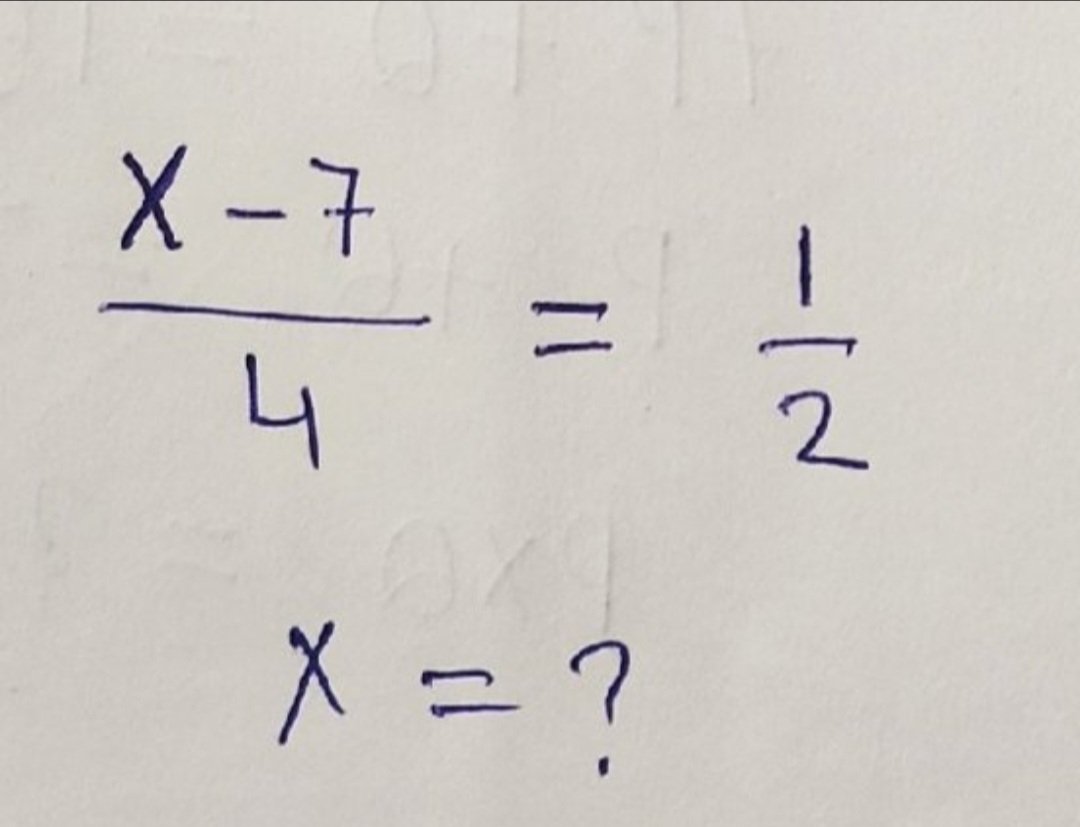 X - 7
4
=
1
2
X = ?